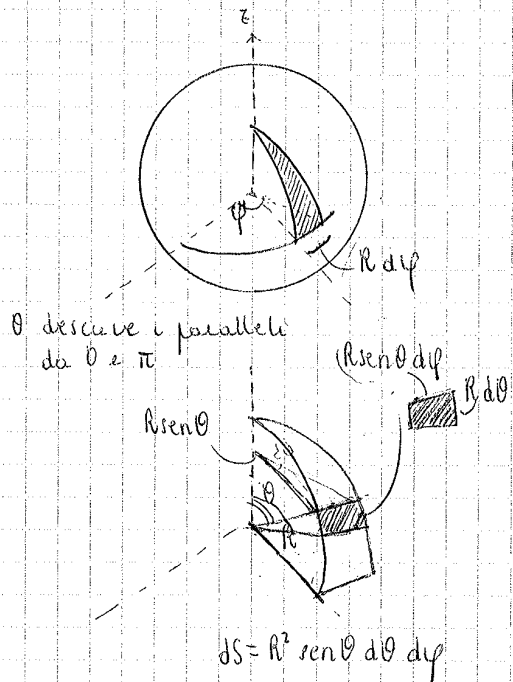 z
φ
R dφ
θ descrive i paralleli
da 0 e π
Rsenθ dφ
R dθ
Rsenθ
θ
R
dS = R² senθ dθ dφ